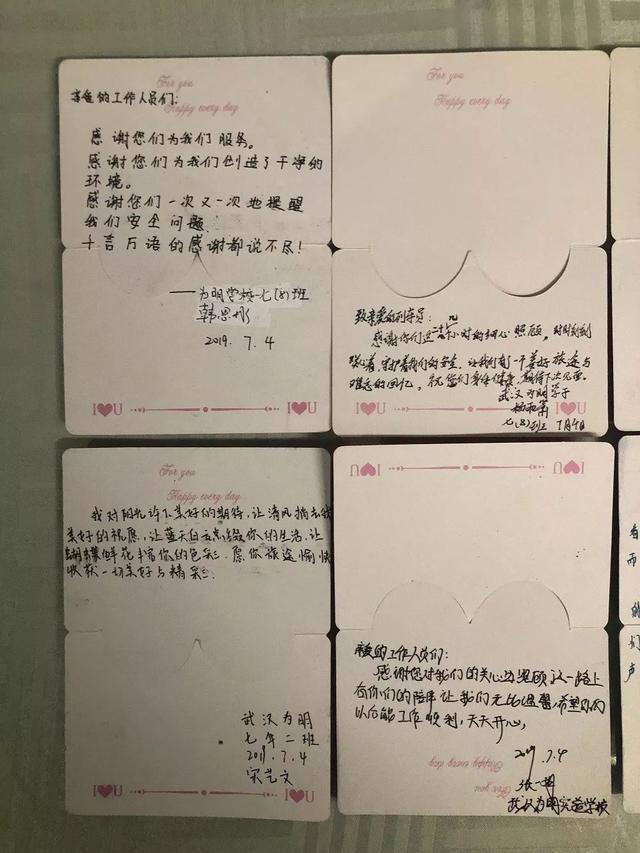 For you
Happy every day
亲爱的工作人员们:
感谢您们为我们服务。
感谢您们为我们创造了干净的
环境。
感谢您们一次又一次地提醒
我们安全问题.
千言万语的感谢都说不尽!
——为明学校七(8)班
韩思彤
2019. 7. 4
I♥U
I♥U
For you
Happy every day
致亲爱的列车员:
感谢你们这二十九小时的细心照顾,时时刻刻
着,守护着我们的安全,让我们有一个美好旅途与
难忘的回忆,祝您们身体健康,期待下次见面。
武汉为明学子
七(8)班 7月4日
I♥U
I♥U
For you
Happy every day
我对阳光许下美好的期待,让清风捎去我
美好的祝愿,让蓝天白云点缀你的生活,让
鲜花丰富你的色彩.愿你旅途愉快
收获一切美好与精彩.
武汉为明
七年二班
2019.7.4
宋艺文
I♥U
I♥U
I♥U
I♥U
亲爱的工作人员们:
感谢您对我们的关心与照顾,这一路上
有你们的陪伴让我们无比温馨,希望你们
以后能工作顺利,天天开心,
2019.7.4
张一
武汉为明实验学校
Happy every day
For you
看
而
的
们
声